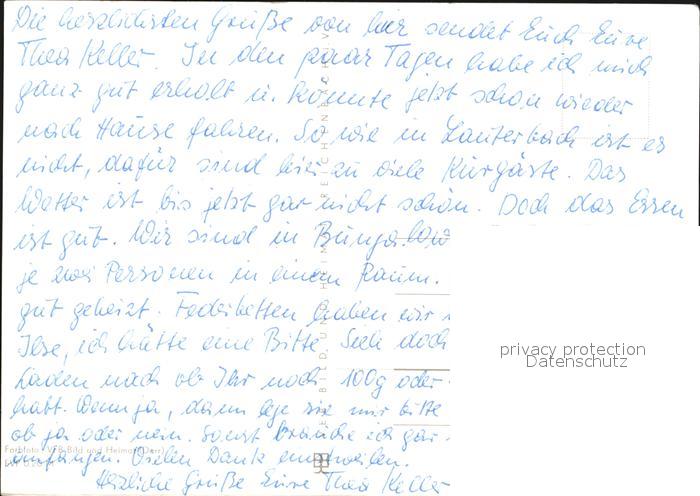 Die herzlichsten Grüße von hier sendet Euch Eure
Thea Keller. In den paar Tagen habe ich mich
ganz gut erholt u. könnte jetzt schon wieder
nach Hause fahren. So wie in Lauterbach ist es
nicht, dafür sind hier zu viele Kurgäste. Das
Wetter ist bis jetzt gar nicht schön. Doch das Essen
ist gut. Wir sind in Bungalow
je zwei Personen in einem Raum.
gut geheizt. Federbetten haben wir
Ilse, ich hätte eine Bitte. Sieh doch
Laden nach ob Ihr noch 100g oder
habt. Wenn ja, dann lege sie mir bitte
ob ja oder nein. Sonst brauche ich gar
anfangen. Vielen Dank einstweilen.
Herzliche Grüße Eure Thea Keller
privacy protection
Datenschutz
Farbfoto: VEB Bild und Heimat (Darr)